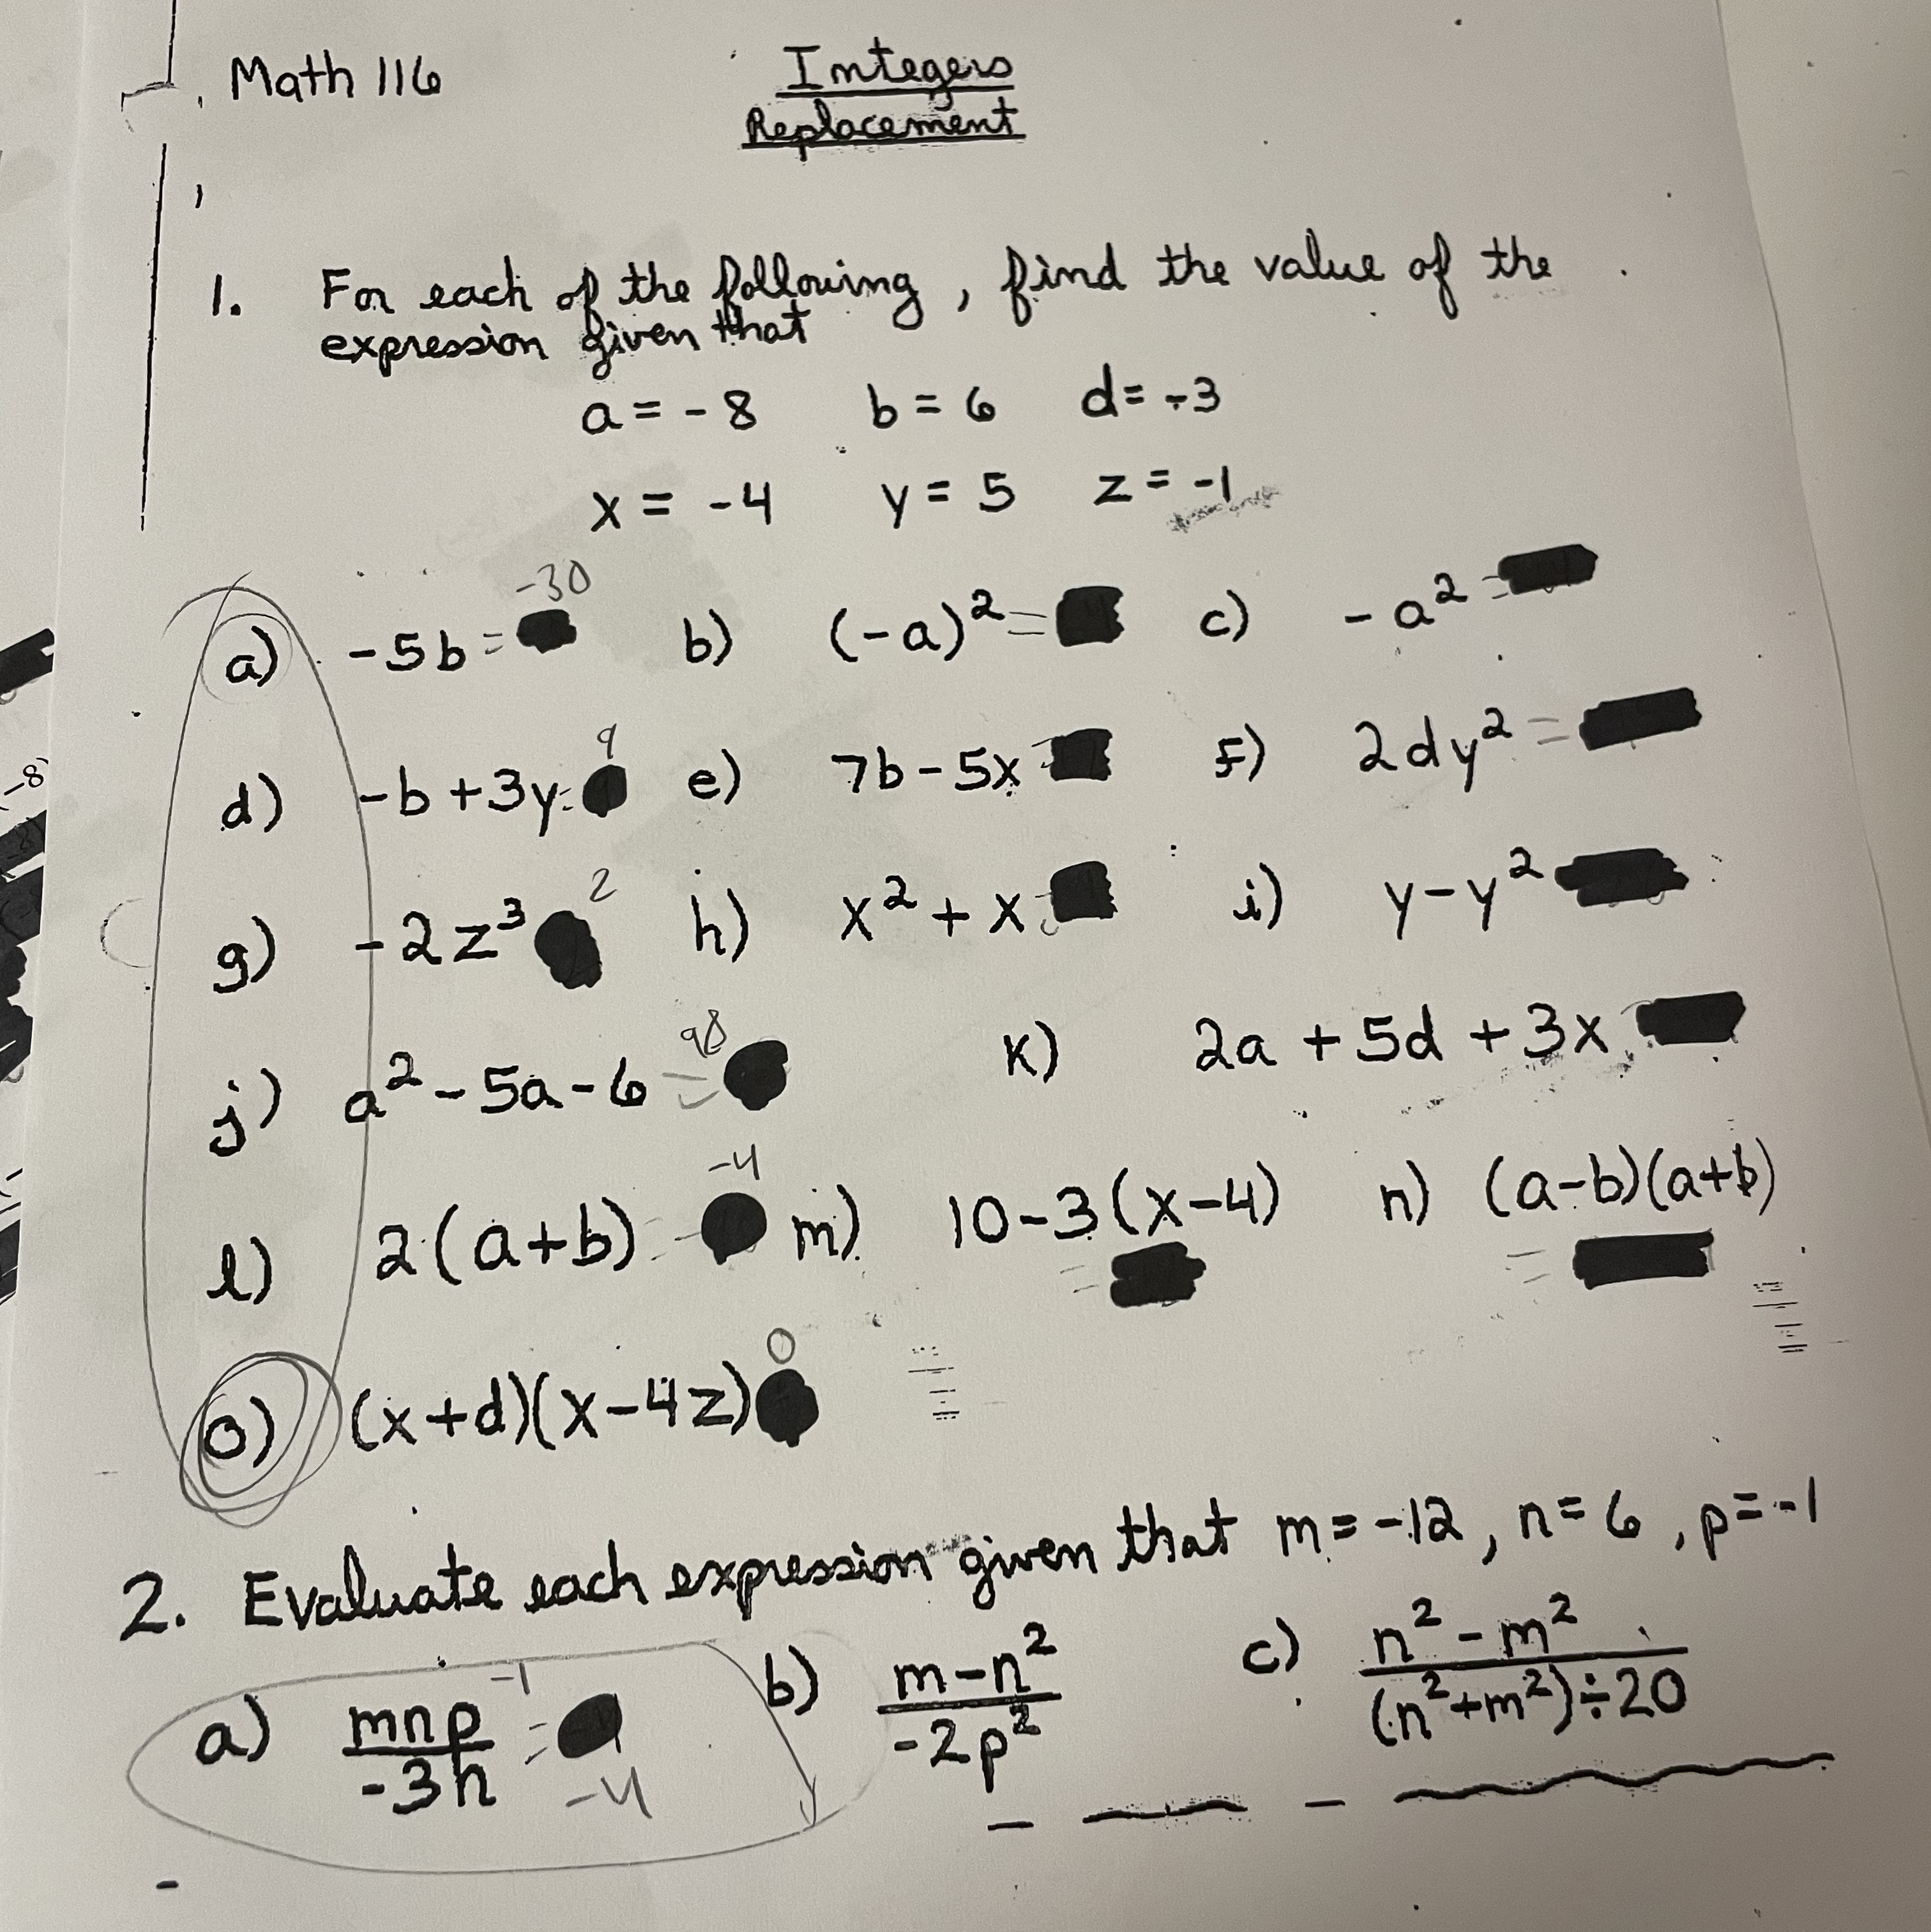 Math 116
Integers
Replacement
1. For each of the following, find the value of the
expression given that
a = -8 b = 6 d = -3
x = -4 y = 5 z = -1
-30
a) -5b = b) (-a)² = c) -a² =
9
d) -b + 3y = e) 7b - 5x f) 2dy² =
-8
2
g) -2z³ h) x² + x i) y - y²
98
j) a² - 5a - 6 = k) 2a + 5d + 3x
-4
l) 2(a+b) = m) 10 - 3(x-4) n) (a-b)(a+b)
= =
0
o) (x+d)(x-4z)
2. Evaluate each expression given that m = -12, n = 6, p = -1
a) mnp/-3n = b) m-n²/-2p² c) n²-m²/(n²+m²)÷20
-1
-4